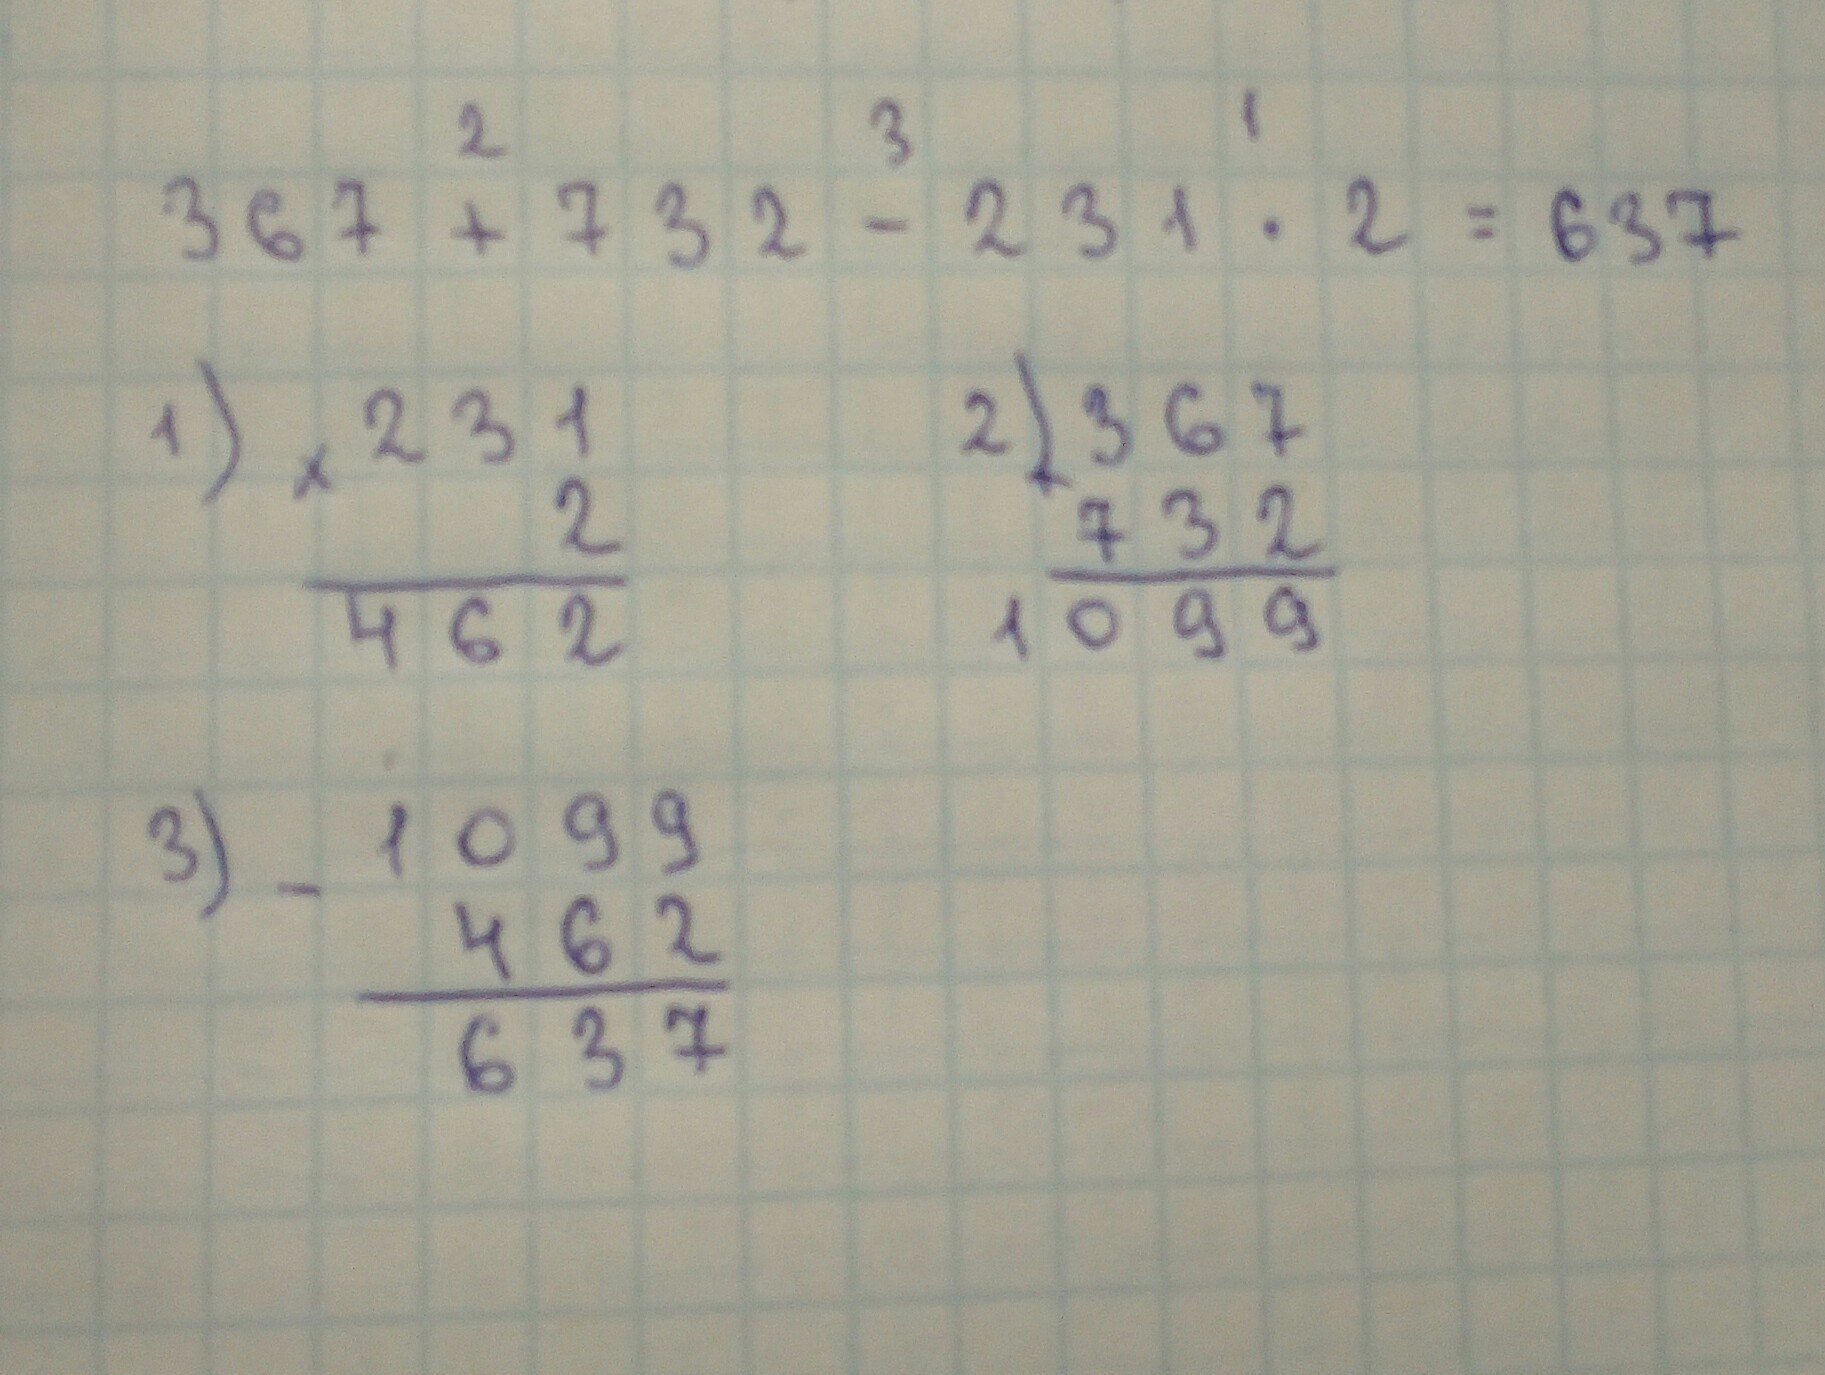 2 3 1
367 + 732 - 231 · 2 = 637
1) × 231
2
462
2) + 367
732
1099
3) - 1099
462
637